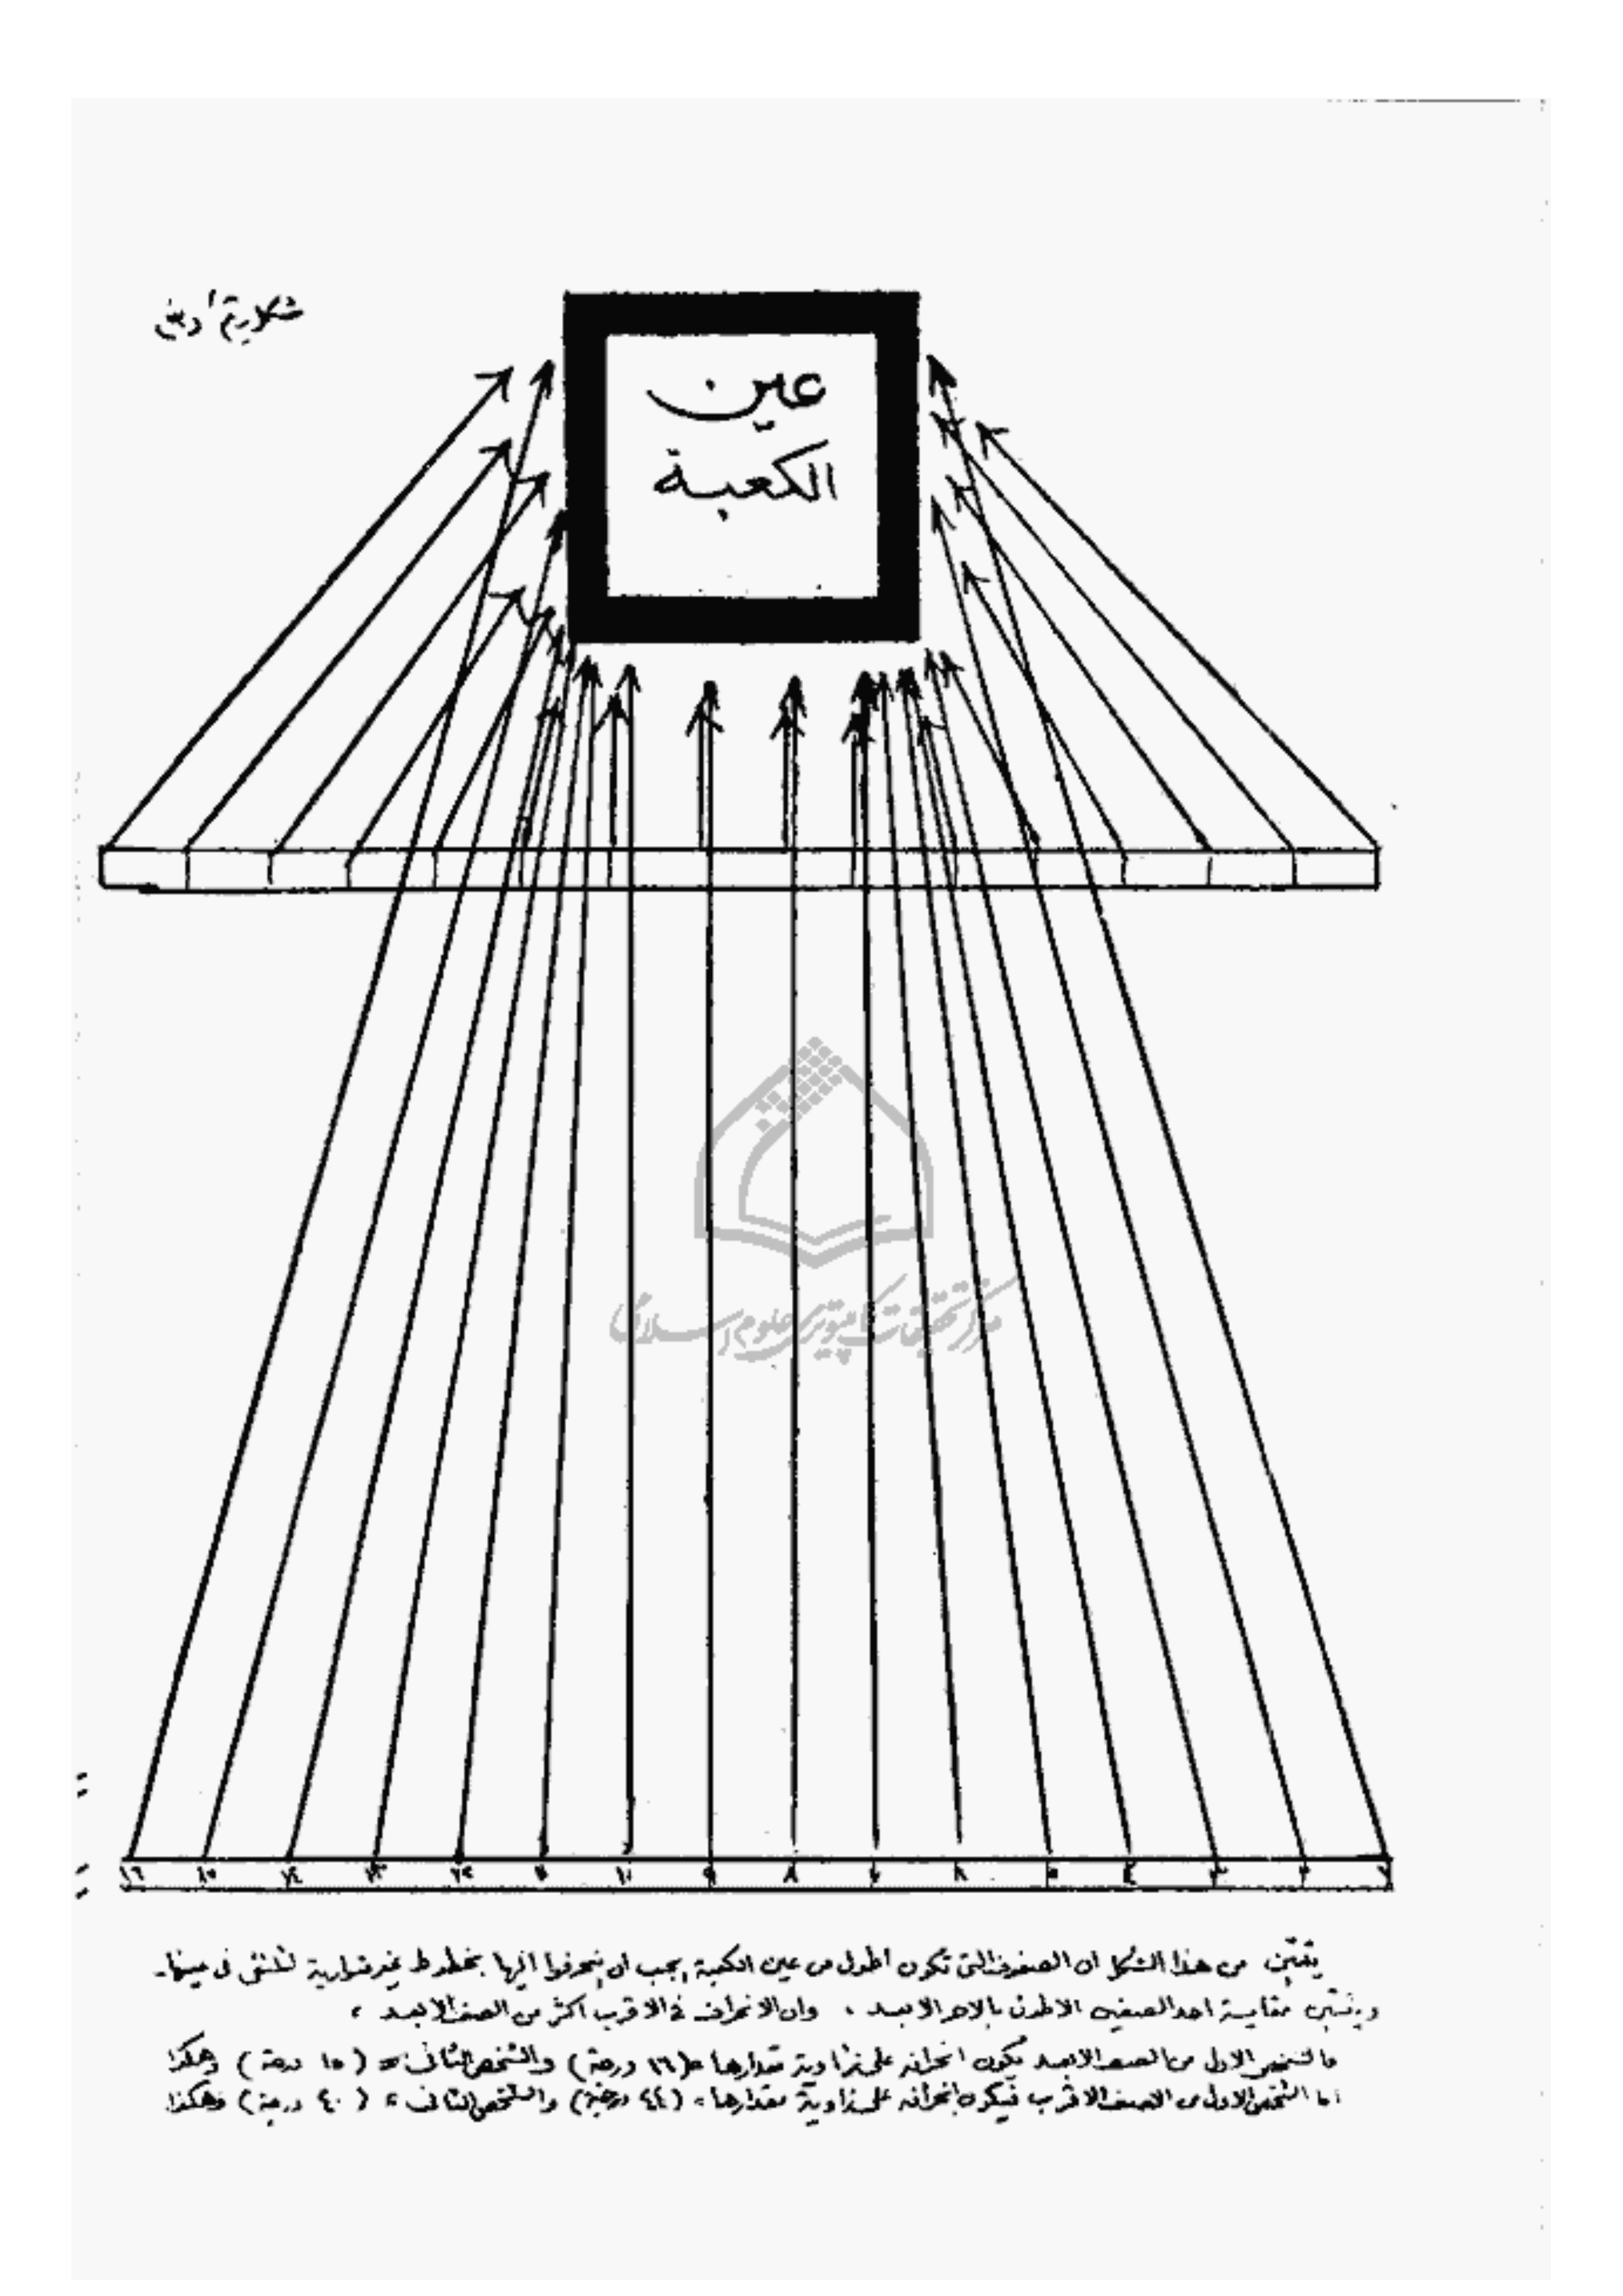 عين
الكعبة
مركز تحقيقات كامپيوترى علوم اسلامى
١٦ ١٥ ١٤ ١٣ ١٢ ١١ ١٠ ٩ ٨ ٧ ٦ ٥ ٤ ٣ ٢ ١
يتبيّن من هذا الشكل ان الصفوف التي تكون اطول من عين الكعبة يجب ان ينحرفوا اليها بخطوط غير متوازية لتلتقي في عينها.
ويتبين مقايسة احد الصفين الاطول بالاخر الابعد ، وان الانحراف في الاقرب اكثر من الصف الابعد ،
فالشخص الاول من الصف الابعد يكون انحرافه على زاوية مقدارها = (١٦ درجة) والشخص الثاني = (١٥ درجة) وهكذا
اما الشخص الاول من الصف الاقرب فيكون انحرافه على زاوية مقدارها = (٤٤ درجة) والشخص الثاني = (٤٠ درجة) وهكذا